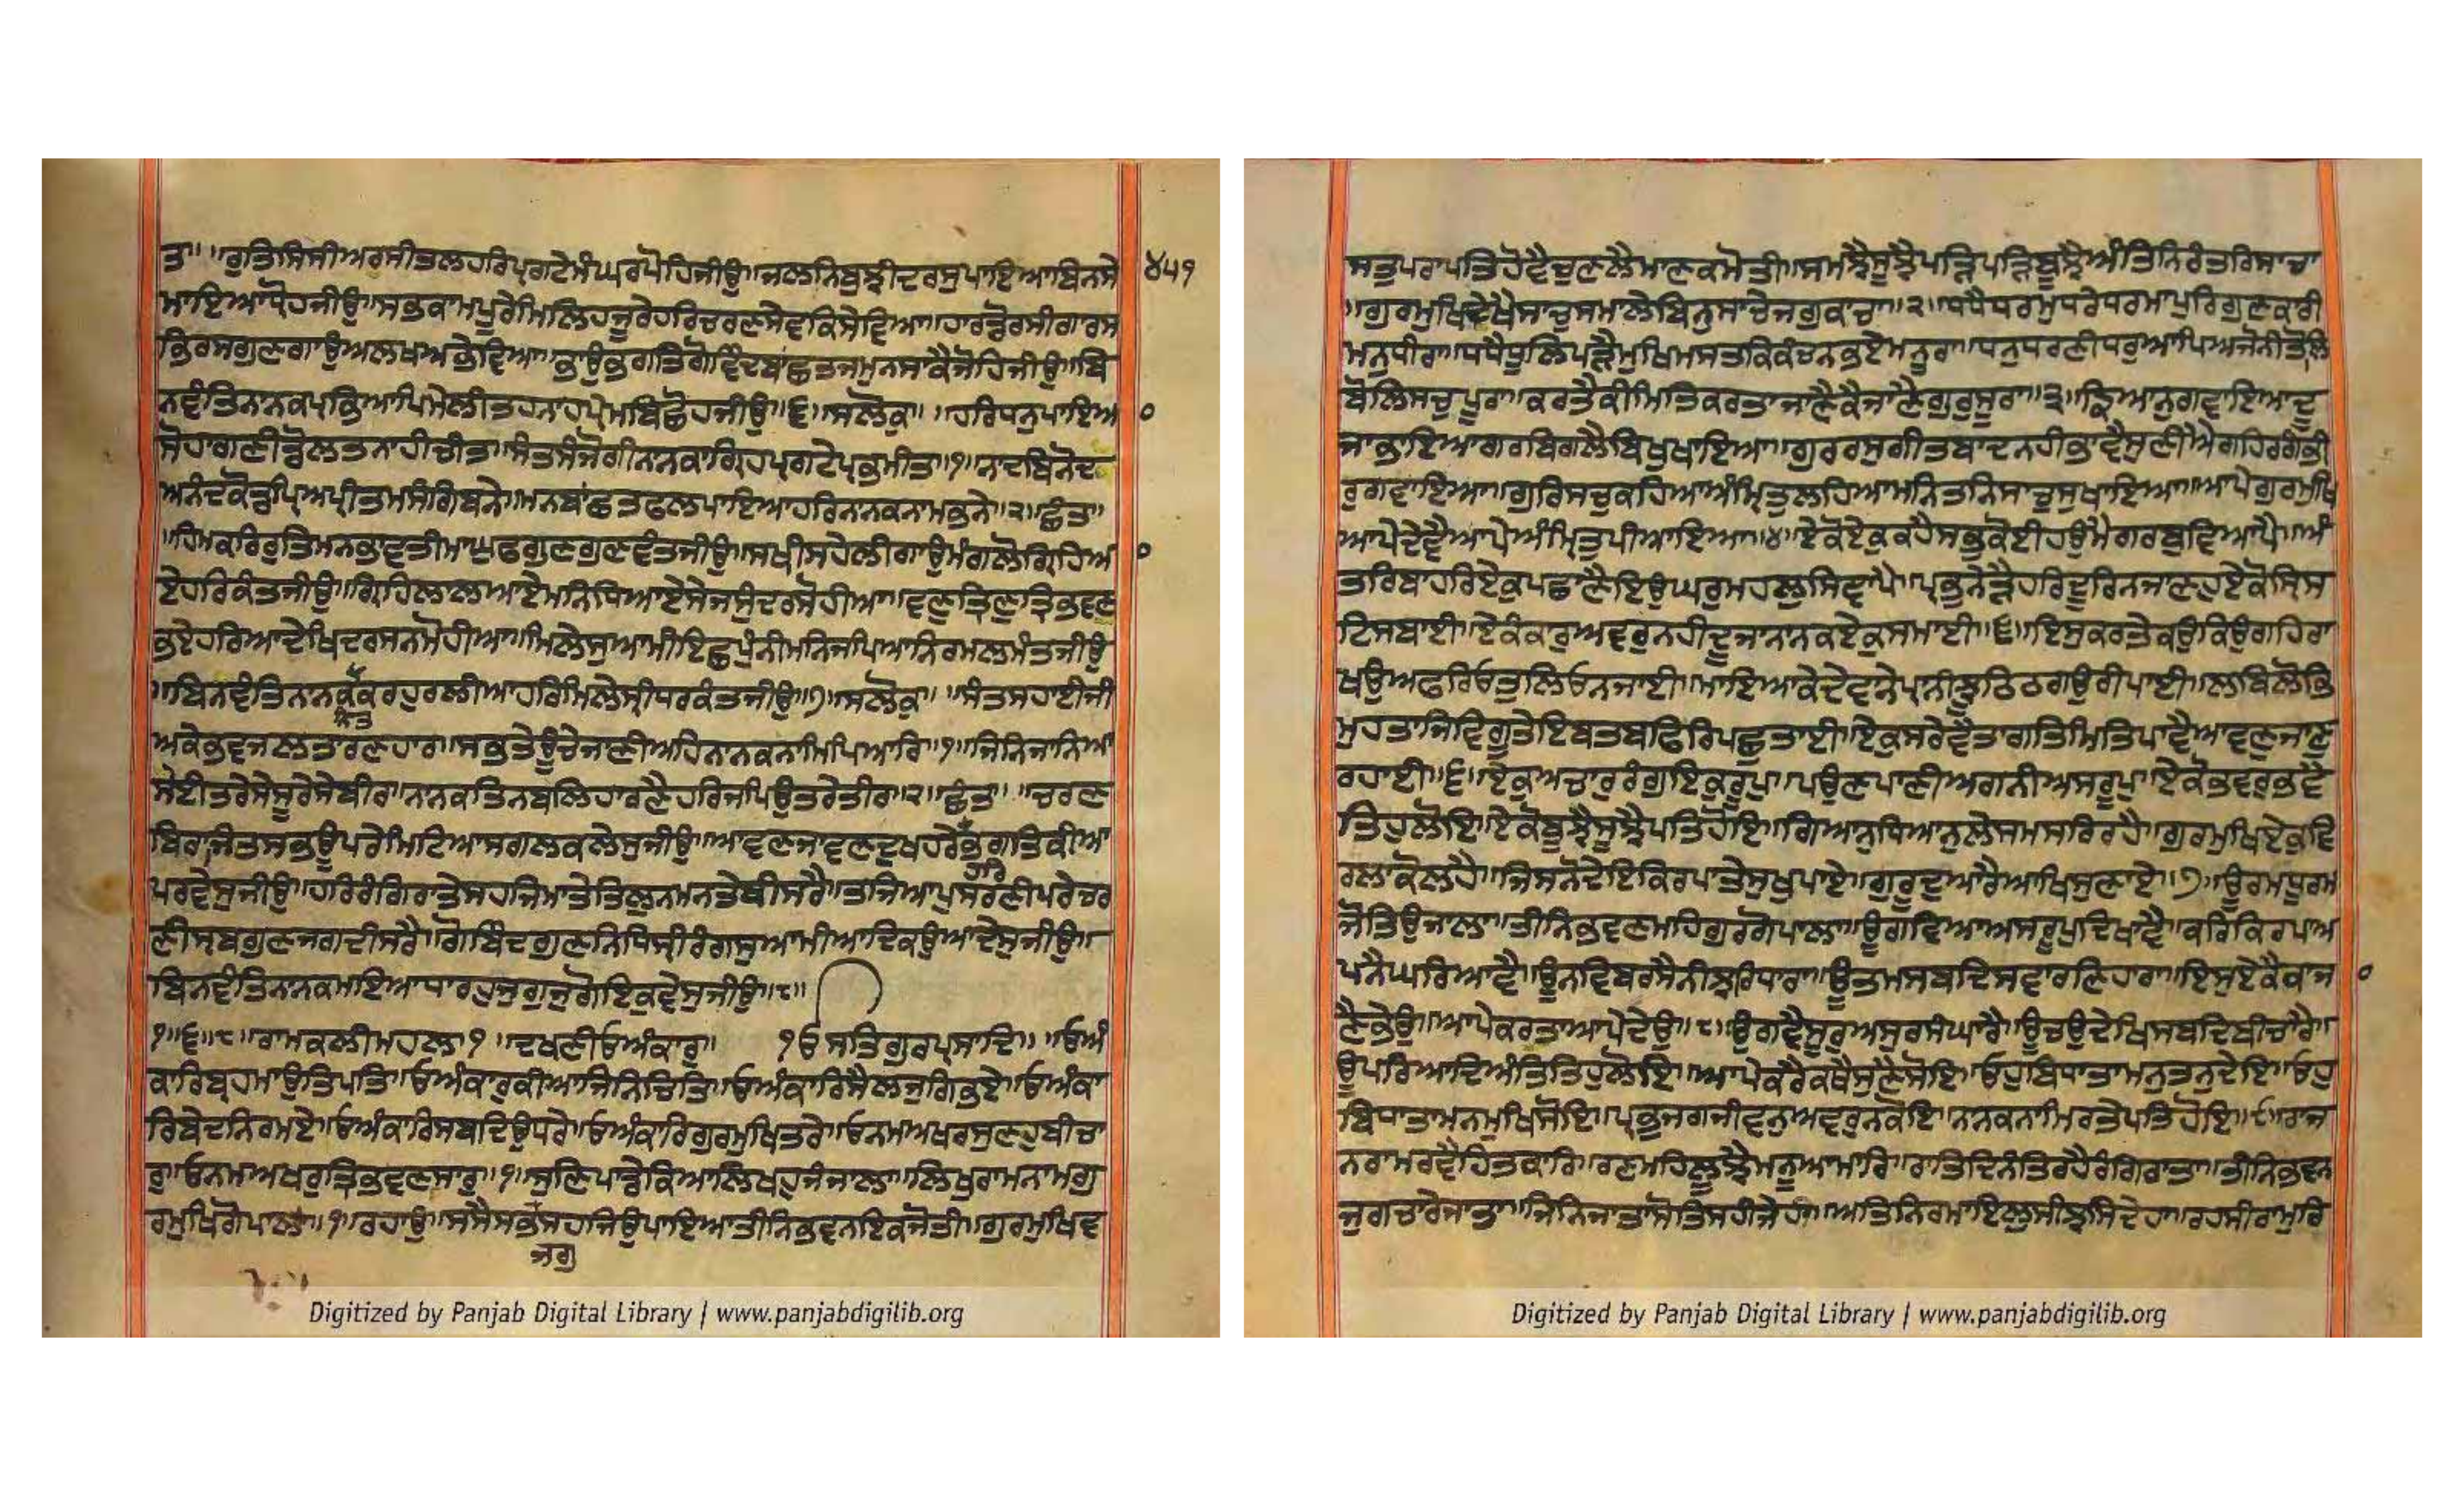 ਤਾ॥ ॥ਰੁਤਿਸਿਸੀਅਰਸੀਤਲਹਰਿਪ੍ਰਗਟੇਮੰਘਰਪੋਹਿਜੀਉ॥ਜਲਨਿਬੁਝੀਦਰਸੁਪਾਇਆਬਿਨਸੇ
੪੫੧
ਮਾਇਆਧ੍ਰੋਹਜੀਉ॥ਸਭਕਾਮਪੂਰੇਮਿਲਿਹਜੂਰੇਹਰਿਚਰਣਸੇਵਕਿਸੇਵਿਆ॥ਹਾਰਡੋਰਸੀਗਾਰਸ
ਭਿਰਸਗੁਣਗਾਉਅਲਖਅਭੇਵਿਆ॥ਭਾਉਭਗਤਿਗੋਵਿੰਦਬਾਂਛਤਜਮੁਨਸਕੈਜੋਹਿਜੀਉ॥ਬਿ
ਨਵੰਤਿਨਾਨਕਪ੍ਰਭਿਆਪਿਮੇਲੀਤਹਨਾਹਪ੍ਰੇਮਬਿਛੋਹਜੀਉ॥੬॥ਸਲੋਕੁ॥ ॥ਹਰਿਧਨੁਪਾਇਆ
ਸੋਹਾਗਣੀਡੋਲਤਨਾਹੀਚੀਤ॥ਸੰਤਸੰਜੋਗੀਨਾਨਕਾਗ੍ਰਿਹਪ੍ਰਗਟੇਪ੍ਰਭਮੀਤ॥੧॥ਨਾਦਬਿਨੋਦ
ਅਨੰਦਕੋਡਪ੍ਰਿਅਪ੍ਰੀਤਮਸੰਗਿਬਨੇ॥ਮਨਬਾਂਛਤਫਲਪਾਇਆਹਰਿਨਾਨਕਨਾਮਭਨੇ॥੨॥ਛੰਤਾ॥
॥ਹਿਮਕਰਰੁਤਿਮਨਭਾਵਤੀਮਾਘੁਫਗੁਣਗੁਣਵੰਤਜੀਉ॥ਸਖੀਸਹੇਲੀਗਾਉਮੰਗਲੋਗ੍ਰਿਹਿਆ
ਏਹਰਿਕੰਤਜੀਉ॥ਗ੍ਰਿਹਿਲਾਲਆਏਮਨਿਧਿਆਏਸੇਜਸੁੰਦਰਸੋਹੀਆ॥ਵਣੁਤ੍ਰਿਣੁਤ੍ਰਿਭਵਣ
ਭਏਹਰਿਆਦੇਖਿਦਰਸਨਮੋਹੀਆ॥ਮਿਲੇਸੁਆਮੀਇਛਪੁੰਨੀਮਨਿਜਪਿਆਨਿਰਮਲਮੰਤਜੀਉ
॥ਬਿਨਵੰਤਿਨਾਨਕਕਰਹੁਰਲੀਆਹਰਿਮਿਲੇਸ੍ਰੀਧਰਕੰਤਜੀਉ॥੭॥ਸਲੋਕੁ॥ ॥ਸੰਤਸਹਾਈਜੀ
ਅਕੇਭਵਜਲਤਾਰਣਹਾਰ॥ਸਭਤੇਊਚੇਜਾਣੀਅਹਿਨਾਨਕਨਾਮਿਪਿਆਰਿ॥੧॥ਜਿਨਿਜਾਨਿਆ
ਸੇਈਤਰੇਸੇਸੂਰੇਸੇਬੀਰ॥ਨਾਨਕਤਿਨਬਲਿਹਾਰਣੈਹਰਿਜਪਿਉਤਰੇਤੀਰ॥੨॥ਛੰਤਾ॥ ॥ਚਰਣ
ਬਿਰਾਜਿਤਸਭਊਪਰੇਮਿਟਿਆਸਗਲਕਲੇਸੁਜੀਉ॥ਆਵਣਜਾਵਣਦੁਖਹਰੇਭਗਤਿਕੀਆ
ਹਰਿ
ਪਰਵੇਸੁਜੀਉ॥ਹਰਿਰੰਗਿਰਾਤੇਸਹਜਿਮਾਤੇਤਿਲੁਨਮਨਤੇਬੀਸਰੈ॥ਤਜਿਆਪੁਸਰਣੀਪਰੇਚਰ
ਣੀਸ੍ਰਬਗੁਣਜਗਦੀਸਰੈ॥ਗੋਬਿੰਦਗੁਣਨਿਧਿਸ੍ਰੀਰੰਗਸੁਆਮੀਆਦਿਕਉਆਦੇਸੁਜੀਉ॥
ਬਿਨਵੰਤਿਨਾਨਕਮਇਆਧਾਰਹੁਜੁਗੁਜੁਗੋਇਕਵੇਸੁਜੀਉ॥੮॥
੧॥੬॥੮॥ਰਾਮਕਲੀਮਹਲਾ੧ ॥ਦਖਣੀਓਅੰਕਾਰੁ॥ ੧ਓਸਤਿਗੁਰਪ੍ਰਸਾਦਿ॥ ॥ਓਅੰ
ਕਾਰਿਬ੍ਰਹਮਾਉਤਿਪਤਿ॥ਓਅੰਕਾਰੁਕੀਆਜਿਨਿਚਿਤਿ॥ਓਅੰਕਾਰਿਸੈਲਜੁਗਿਭਏ॥ਓਅੰਕਾ
ਰਿਬੇਦਨਿਰਮਏ॥ਓਅੰਕਾਰਿਸਬਦਿਉਧਰੇ॥ਓਅੰਕਾਰਿਗੁਰਮੁਖਿਤਰੇ॥ਓਨਮਅਖਰਸੁਣਹੁਬੀਚਾ
ਰੁ॥ਓਨਮਅਖਰੁਤ੍ਰਿਭਵਣਸਾਰੁ॥੧॥ਸੁਣਿਪਾਡੇਕਿਆਲਿਖਹੁਜੰਜਾਲਾ॥ਲਿਖੁਰਾਮਨਾਮਗੁ
ਰਮੁਖਿਗੋਪਾਲਾ॥੧॥ਰਹਾਉ॥ਸਸੈਸਭਸਹਜਿਉਪਾਇਆਤੀਨਿਭਵਨਇਕਜੋਤੀ॥ਗੁਰਮੁਖਿਵ
ਜਗੁ
Digitized by Panjab Digital Library | www.panjabdigilib.org
ਸਤੁਪਰਾਪਤਿਹੋਵੈਚੁਣਲੈਮਾਣਕਮੋਤੀ॥ਸਮਝੈਸੂਝੈਪੜਿਪੜਿਬੂਝੈਅੰਤਿਨਿਰੰਤਰਿਸਾਚਾ
॥ਗੁਰਮੁਖਿਦੇਖੈਸਾਚੁਸਮਾਲੇਬਿਨੁਸਾਚੇਜਗੁਕਾਚਾ॥੨॥ਧਧੈਧਰਮੁਧਰੇਧਰਮਾਪੁਰਿਗੁਣਕਾਰੀ
ਮਨੁਧੀਰਾ॥ਧਧੈਧੂਲਿਪੜੈਮੁਖਿਮਸਤਕਿਕੰਚਨਭਏਮਨੂਰਾ॥ਧਨੁਧਰਣੀਧਰੁਆਪਿਅਜੋਨੀਤੋਲਿ
ਬੋਲਿਸਚੁਪੂਰਾ॥ਕਰਤੇਕੀਮਿਤਿਕਰਤਾਜਾਣੈਕੈਜਾਣੈਗੁਰੁਸੂਰਾ॥੩॥ਙਿਆਨੁਗਵਾਇਆਦੂ
ਜਾਭਾਇਆਗਰਬਿਗਲੈਬਿਖੁਖਾਇਆ॥ਗੁਰਰਸੁਗੀਤਬਾਦਨਹੀਭਾਵੈਸੁਣੀਐਗਹਿਰਗੰਭੀ
ਰੁਗਵਾਇਆ॥ਗੁਰਿਸਚੁਕਹਿਆਅੰਮ੍ਰਿਤੁਲਹਿਆਮਨਿਤਨਿਸਾਚੁਸੁਖਾਇਆ॥ਆਪੇਗੁਰਮੁਖਿ
ਆਪੇਦੇਵੈਆਪੇਅੰਮ੍ਰਿਤੁਪੀਆਇਆ॥੪॥ਏਕੋਏਕੁਕਹੈਸਭੁਕੋਈਹਉਮੈਗਰਬੁਵਿਆਪੈ॥ਅੰ
ਤਰਿਬਾਹਰਿਏਕੁਪਛਾਣੈਇਉਘਰੁਮਹਲੁਸਿਞਾਪੈ॥ਪ੍ਰਭੁਨੇੜੈਹਰਿਦੂਰਿਨਜਾਣਹੁਏਕੋਸ੍ਰਿਸ
ਟਿਸਬਾਈ॥ਏਕੰਕਾਰੁਅਵਰੁਨਹੀਦੂਜਾਨਾਨਕਏਕੁਸਮਾਈ॥੬॥ਇਸੁਕਰਤੇਕਉਕਿਉਗਹਿਰਾ
ਖਉਅਫਰਿਓਤੁਲਿਓਨਜਾਈ॥ਮਾਇਆਕੇਦੇਵਾਨੇਪ੍ਰਾਨੀਝੂਠਿਠਗਉਰੀਪਾਈ॥ਲਬਿਲੋਭਿ
ਮੁਹਤਾਜਿਵਿਗੁਤੇਇਬਤਬਫਿਰਿਪਛੁਤਾਈ॥ਏਕੁਸਰੇਵੈਤਾਗਤਿਮਿਤਿਪਾਵੈਆਵਣੁਜਾਣੁ
ਰਹਾਈ॥੬॥ਏਕੁਅਚਾਰੁਰੰਗੁਇਕੁਰੂਪੁ॥ਪਉਣਪਾਣੀਅਗਨੀਅਸਰੂਪੁ॥ਏਕੋਭਵਰੁਭਵੈ
ਤਿਹੁਲੋਇ॥ਏਕੋਬੂਝੈਸੂਝੈਪਤਿਹੋਇ॥ਗਿਆਨੁਧਿਆਨੁਲੇਸਮਸਰਿਰਹੈ॥ਗੁਰਮੁਖਿਏਕੁਵਿ
ਰਲਾਕੋਲਹੈ॥ਜਿਸਨੋਦੇਇਕਿਰਪਾਤੇਸੁਖੁਪਾਏ॥ਗੁਰੂਦੁਆਰੈਆਖਿਸੁਣਾਏ॥੭॥ਊਰਮਧੂਰਮ
ਜੋਤਿਉਜਾਲਾ॥ਤੀਨਿਭਵਣਮਹਿਗੁਰਗੋਪਾਲਾ॥ਊਗਵਿਆਅਸਰੂਪੁਦਿਖਾਵੈ॥ਕਰਿਕਿਰਪਾਅ
ਪਨੈਘਰਿਆਵੈ॥ਊਨਵਿਬਰਸੈਨੀਝਰਿਧਾਰਾ॥ਊਤਮਸਬਦਿਸਵਾਰਣਿਹਾਰਾ॥ਇਸੁਏਕੈਕਾਜ
ਣੈਭੇਉ॥ਆਪੇਕਰਤਾਆਪੇਦੇਉ॥੮॥ਉਗਵੈਸੂਰੁਅਸੁਰਸੰਘਾਰੈ॥ਊਚਉਦੇਖਿਸਬਦਿਬੀਚਾਰੈ॥
ਊਪਰਿਆਦਿਅੰਤਿਤਿਹੁਲੋਇ॥ਆਪੇਕਰੈਕਥੈਸੁਣੈਸੋਇ॥ਓਹੁਬਿਧਾਤਾਮਨੁਤਨੁਦੇਇ॥ਓਹੁ
ਬਿਧਾਤਾਮਨਮੁਖਿਸੋਇ॥ਪ੍ਰਭੁਜਗਜੀਵਨੁਅਵਰੁਨਕੋਇ॥ਨਾਨਕਨਾਮਿਰਤੇਪਤਿਹੋਇ॥੯॥ਰਾਜ
ਨਰਾਮਰਵੈਹਿਤਕਾਰਿ॥ਰਣਮਹਿਲੂਝੈਮਨੂਆਮਾਰਿ॥ਰਾਤਿਦਿਨੰਤਿਰਹੈਰੰਗਿਰਾਤਾ॥ਤੀਨਿਭਵਨ
ਜੁਗਚਾਰੇਜਾਤਾ॥ਜਿਨਿਜਾਤਾਸੋਤਿਸਹੀਜੇਹਾ॥ਅਤਿਨਿਰਮਾਇਲੁਸੀਝਸਿਦੇਹਾ॥ਰਹਸੀਰਾਮੁਰਿ
Digitized by Panjab Digital Library | www.panjabdigilib.org